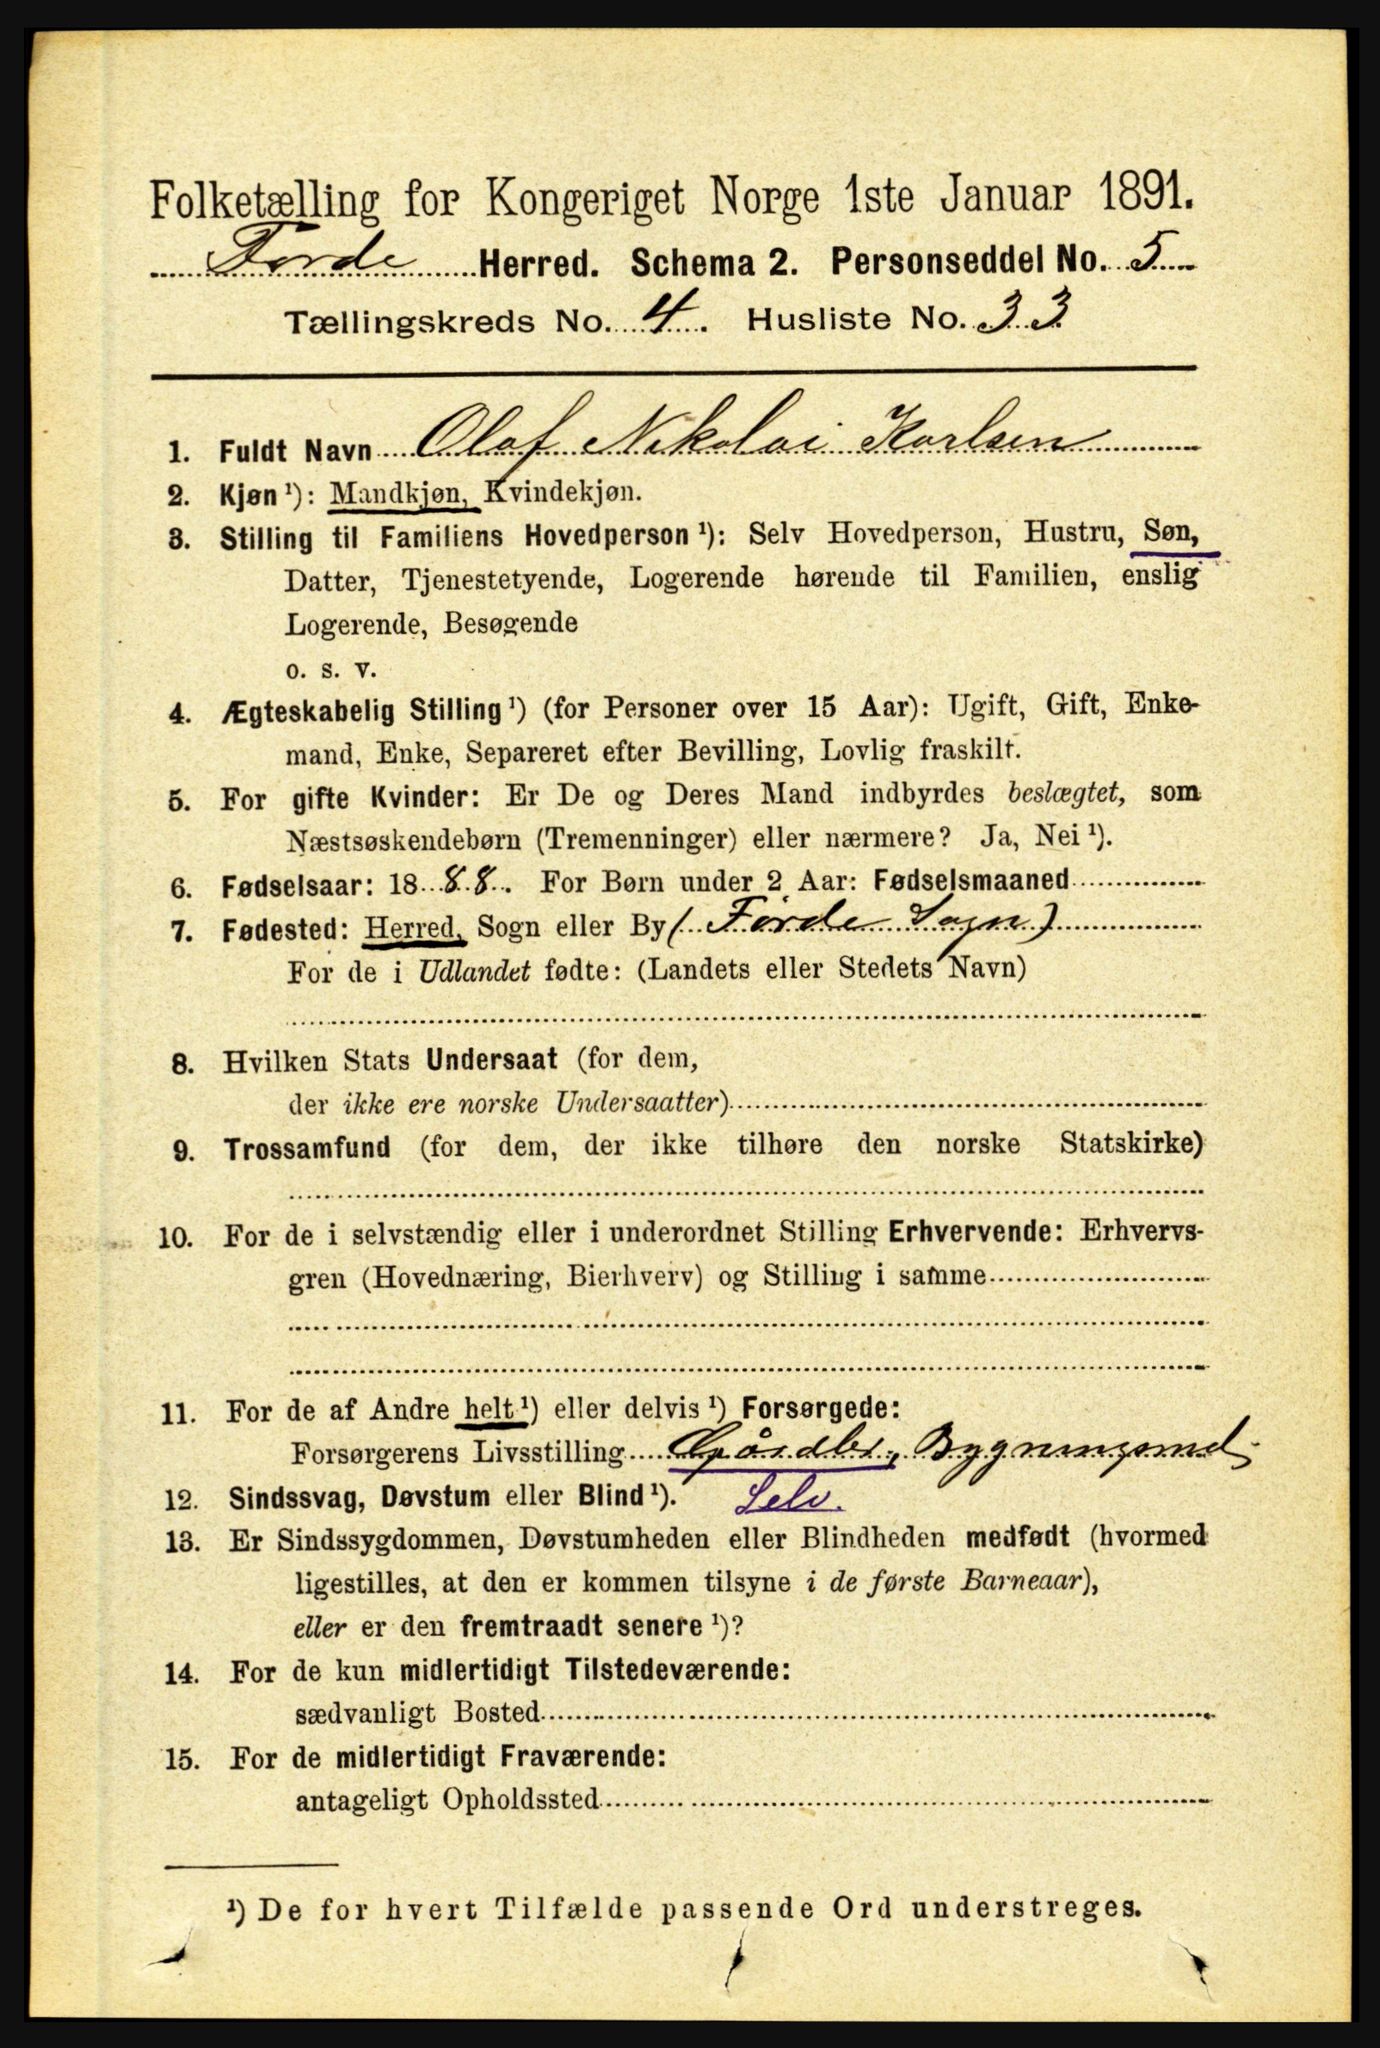 Folketælling for Kongeriget Norge 1ste Januar 1891.
Førde Herred. Schema 2. Personseddel No. 5
Tællingskreds No. 4. Husliste No. 33
1. Fuldt Navn Olaf Nikolai Karlsen
2. Kjøn ¹): Mandkjøn, Kvindekjøn.
3. Stilling til Familiens Hovedperson ¹): Selv Hovedperson, Hustru, Søn,
Datter, Tjenestetyende, Logerende hørende til Familien, enslig
Logerende, Besøgende
o. s. v.
4. Ægteskabelig Stilling ¹) (for Personer over 15 Aar): Ugift, Gift, Enke-
mand, Enke, Separeret efter Bevilling, Lovlig fraskilt.
5. For gifte Kvinder: Er De og Deres Mand indbyrdes beslægtet, som
Næstsøskendebørn (Tremenninger) eller nærmere? Ja, Nei ¹).
6. Fødselsaar: 1888. For Børn under 2 Aar: Fødselsmaaned
7. Fødested: Herred, Sogn eller By (Førde Sogn)
For de i Udlandet fødte: (Landets eller Stedets Navn)
8. Hvilken Stats Undersaat (for dem,
der ikke ere norske Undersaatter)
9. Trossamfund (for dem, der ikke tilhøre den norske Statskirke)
10. For de i selvstændig eller i underordnet Stilling Erhvervende: Erhvervs-
gren (Hovednæring, Bierhverv) og Stilling i samme
11. For de af Andre helt ¹) eller delvis ¹) Forsørgede:
Forsørgerens Livsstilling Gårdbr, Bygningsmd
12. Sindssvag, Døvstum eller Blind ¹). Selv.
13. Er Sindssygdommen, Døvstumheden eller Blindheden medfødt (hvormed
ligestilles, at den er kommen tilsyne i de første Barneaar),
eller er den fremtraadt senere ¹)?
14. For de kun midlertidigt Tilstedeværende:
sædvanligt Bosted
15. For de midlertidigt Fraværende:
antageligt Opholdssted
¹) De for hvert Tilfælde passende Ord understreges.